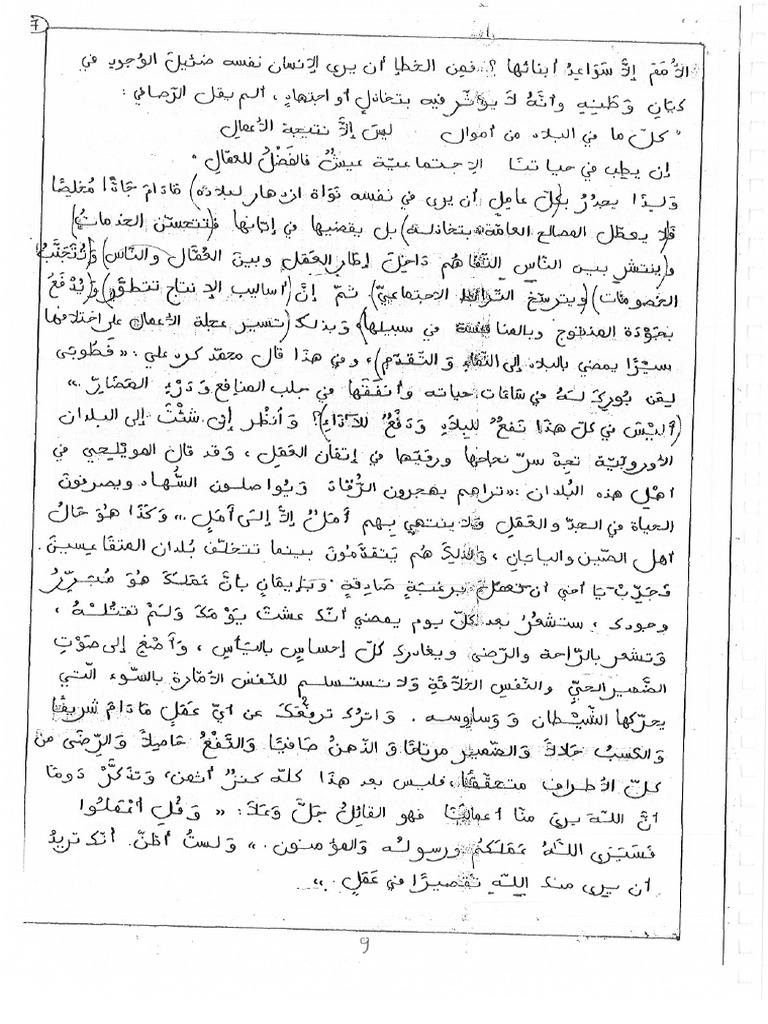 7
الأُمَمِ إلاَّ سَوَاعِدُ أبنائها ؟. فمِن الخطإ أن يرى الإنسان نفسه ضئيلَ الوُجودِ في
كيانِ وَطَنِهِ وأنَّهُ لاَ يُؤثّر فيه بتخاذلٍ أو اجتهادٍ ، ألم يقل الرّصافي :
" كلّ ما في البلاد من أموال ليسَ إلاَّ نتيجة الأعمالِ
إن يطب في حياتنا الاجتماعيّة عيشٌ فالفَضْلُ للعمّالِ "
وَلِذَا يجدُرُ (بكلّ عاملٍ أن يرى في نفسه نَوَاة ازدهار لبلاده) مَادَامَ جَادًّا مُخلِصًا
(فلا يعطّل المصالح العامّة بتخاذله) بل يقضيها في إبّانها (فتتحسّن الخدماتُ)
و(ينتشر بين النّاسِ التّفاهم دَاخِلَ إطار العَمَلِ وبينَ العُمَّال والنّاس) وَ(تُتَجَنَّبُ
الخصومات) (ويترسّخ التّرابط الاجتماعيّ). ثمّ إنَّ (أساليب الإنتاج تتطوّر) وَ(يُدْفَعُ
بجَوْدَة المنتوج وبالمنافسة في سبيلها) وَبذلك (تسير عجلة الأعمال على اختلافها
سَيْرًا يمضي بالبلاد إلى النّماء وَالتّقدّم) ، وفي هذا قال محمّد كرد علي : « فَطُوبَى
لِمَن بُورِكَ لَهُ في سَاعَات حياته وأنفَقَها في جلب المنافع وَدَرْءِ المَضَارِّ ».
(أليْسَ في كلّ هذا نَفعٌ للبلادِ وَدَفْعٌ للأذَى) ؟ وَانْظُر إن شئْتَ إلى البلدان
الأوروبيّة تجدْ سرّ نجاحها ورقيّها في إتقان العَمَلِ ، وَقد قال المويلحي في
أهْلِ هذه البُلدان : « تراهم يهجرون الرُّقادَ وَيُواصلون السُّهادَ ويصرفونَ
الحياة في الجدّ والعَمَلِ فلا ينتهي بِهِم أَمَلٌ إلاّ إلى أَمَلٍ ». وَكَذَا هُوَ حَالُ
أهل الصّين واليابان ، وَلِذَلِكَ هُم يَتَقدَّمُونَ بينما تتخلّف بُلدان المتقاعسين.
فَجَرِّبْ يَا أخي أن تعملَ برغبَةٍ صَادِقَةٍ وَبإيمَانٍ بأنَّ عَمَلَكَ هُوَ مُبَرِّرُ
وجودك ، ستشعُرُ بعد كلّ يوم يمضي أنّك عشتَ يَوْمَكَ وَلَمْ تقتُلْهُ ،
وَتشعر بالرّاحة والرّضى ويغادرك كلّ إحساس باليَأس ، وَأصْغِ إلى صَوْتِ
الضّمير الحيّ والنّفس الخلاّقَةِ وَلا تستسلم للنّفس الأمّارة بالسّوء الّتي
يحرّكها الشّيْطَان وَوَسَاوسه . وَاترك ترفُّعَكَ عن أيّ عَمَلٍ مَادَامَ شريفًا
وَالكَسبُ حَلاَلاً وَالضّمير مرتاحًا وَالذّهنُ صَافيًا وَالنّفعُ حَاصِلاً وَالرّضَى من
كلّ الأطراف متحقّقًا ، فليس بعد هذا كلّه كنزٌ أثمن، وَتذكّرْ دَومًا
أنَّ اللّهَ يرى منّا أعمالنَا فهو القائلُ جَلَّ وَعَلاَ : « وَقُلِ اعْمَلُوا
فَسَيَرَى اللّهُ عَمَلَكُمْ ورسولُه وَالمؤمنون. » وَلستُ أظنّ أنّك تريدُ
أن يرى منك اللّهُ تقصيرًا في عَمَلٍ . »
9